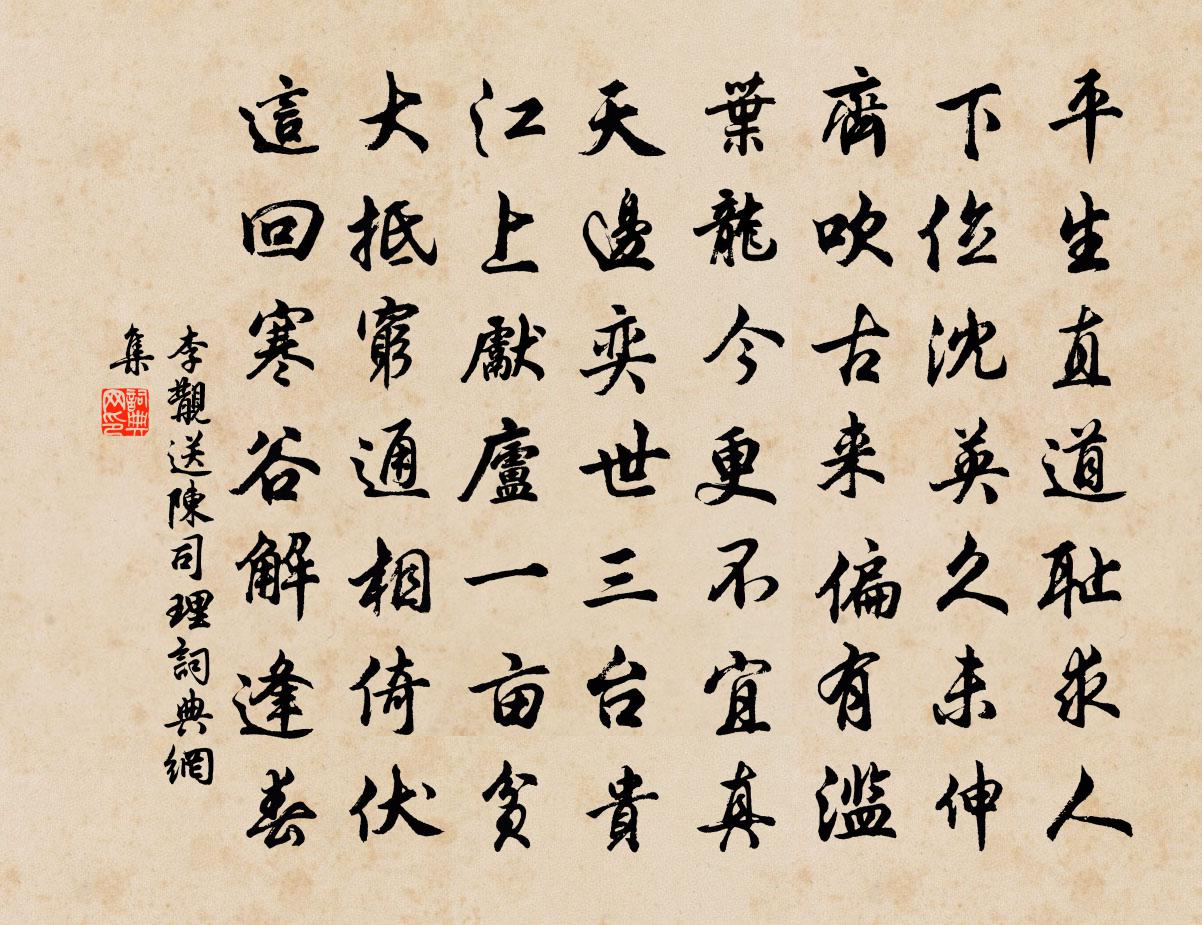 平生直道耻求人
下位沈英久未伸
齊吹古来偏有濫
葉龍今更不宜真
天邊奕世三台貴
江上獻廬一亩貧
大抵窮通相倚伏
這回寒谷解逢春
李覯送陳司理詞典網
集
詞典
网印